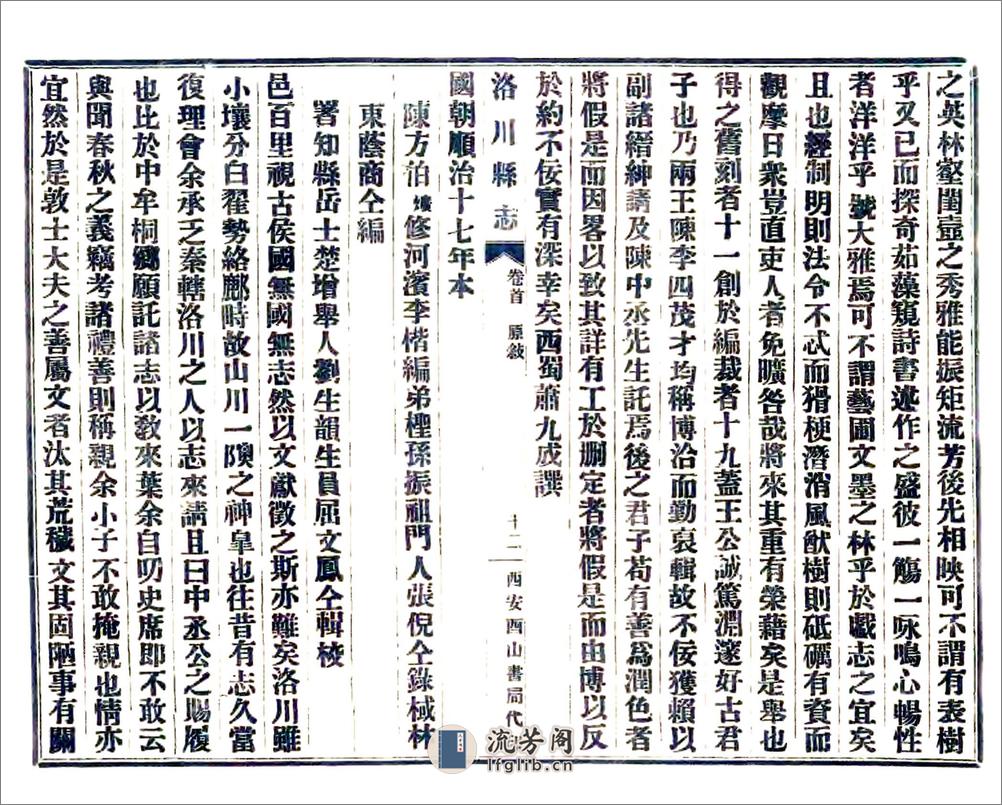 之英林壑闺壼之秀雅能振矩流芳後先相映可不謂有表樹
乎又已而探奇茹藻窺詩書述作之盛彼一觴一咏鳴心暢性
者洋洋乎號大雅焉可不謂藝圃文墨之林乎於戲志之宜矣
且也經制明則法令不忒而猾梗潛消風猷樹則砥礪有資而
觀摩日衆豈直吏人者免曠咎哉將來其重有榮藉矣是舉也
得之舊刻者十一創於編裁者十九蓋王公誠篤淵邃好古君
子也乃兩王陳李四茂才均稱博洽而勤裒輯故不佞獲賴以
副諸縉紳請及陳中丞先生託焉後之君子苟有善爲潤色者
將假是而因畧以致其詳有工於删定者將假是而由博以反
於約不佞實有深幸矣西蜀蕭九成譔
洛川縣志 卷首 原敍 十二 西安酉山書局代
國朝順治十七年本
陳方伯爌修河濱李楷編弟檉孫振祖門人張倪仝錄棫林
東蔭商仝編
署知縣岳士楚增舉人劉生韻生員屈文鳳仝輯校
邑百里視古侯國無國無志然以文獻徵之斯亦難矣洛川雖
小壤分白翟勢絡鄜畤故山川一隩之神皐也往昔有志久當
復理會余承乏秦轄洛川之人以志來請且曰中丞公之賜履
也比於中牟桐鄉願託諸志以敎來葉余自叨史席即不敢云
與聞春秋之義竊考諸禮善則稱親余小子不敢掩親也情亦
宜然於是敦士大夫之善屬文者汰其荒穢文其固陋事有關
流芳阁
lfglib.cn